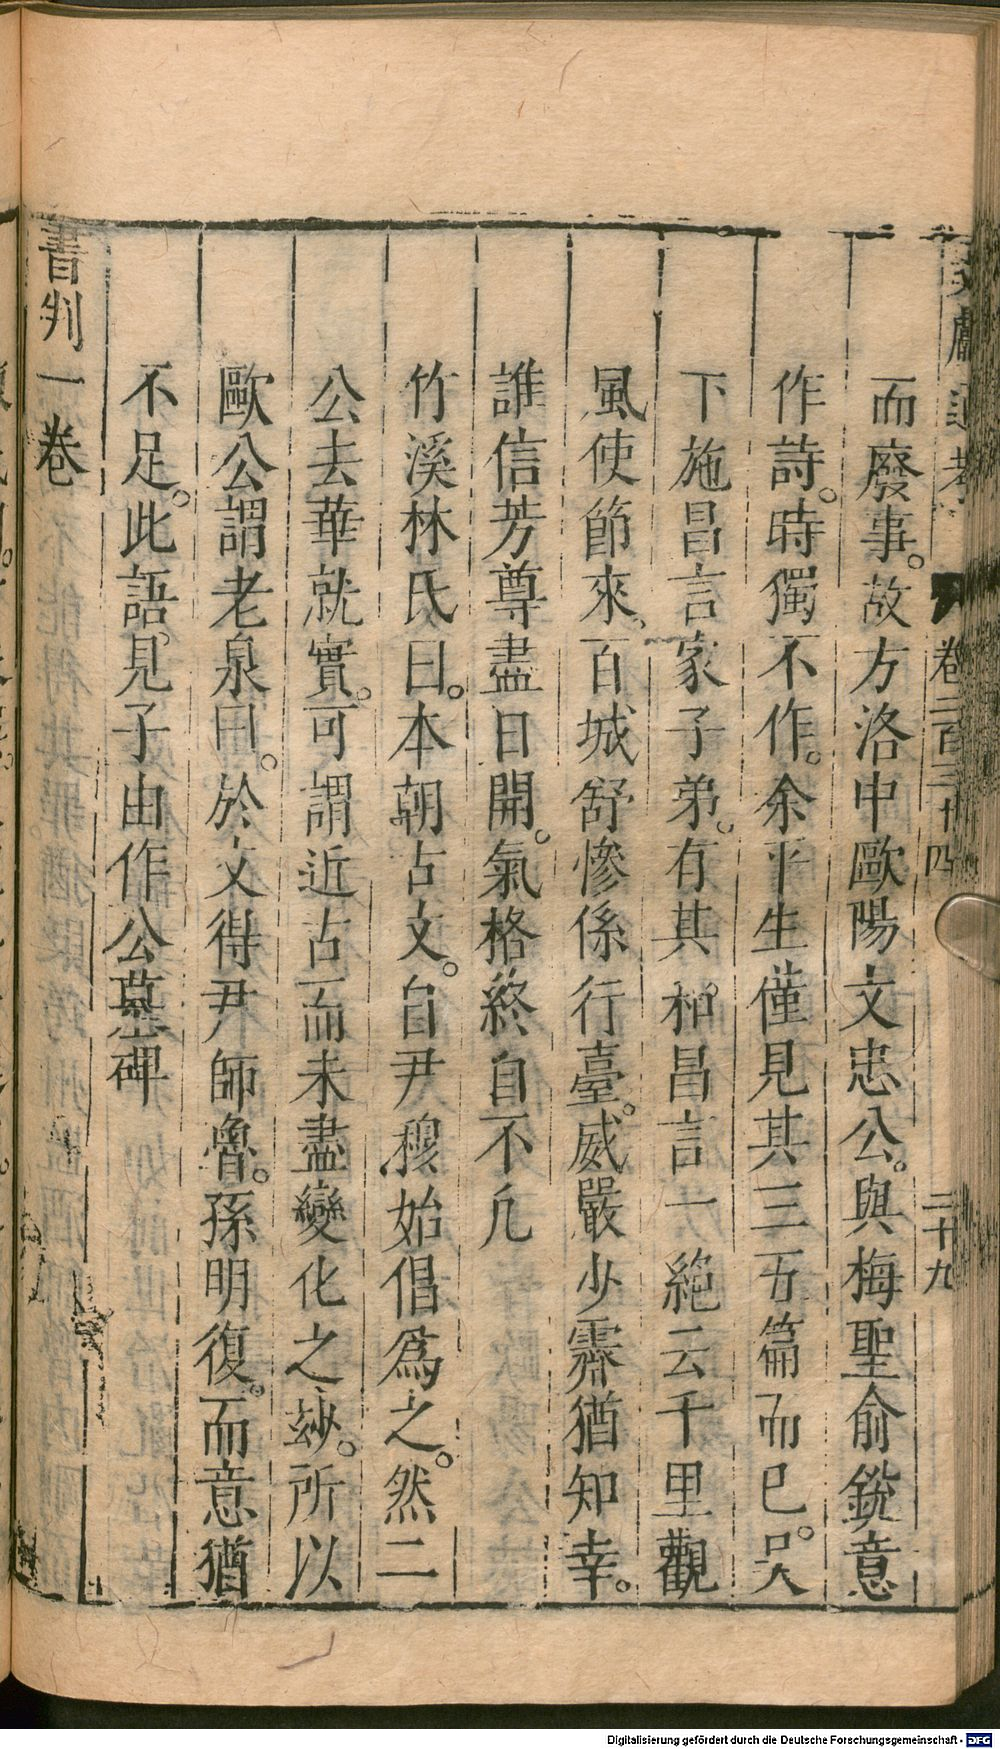 文獻通考 卷二百三十四 二十九
而廢事故方洛中歐陽文忠公與梅聖俞銳意
作詩時獨不作余平生僅見其三五篇而已吳
下施昌言家子弟有其和昌言一絕云千里觀
風使節來百城舒慘係行臺威嚴少霽猶知幸
誰信芳尊盡日開氣格終自不凡
竹溪林氏曰本朝古文自尹穆始倡爲之然二
公去華就實可謂近古而未盡變化之玅所以
歐公謂老泉曰於文得尹師魯孫明復而意猶
不足此語見子由作公墓碑
書判一卷
Digitalisierung gefördert durch die Deutsche Forschungsgemeinschaft - DFG